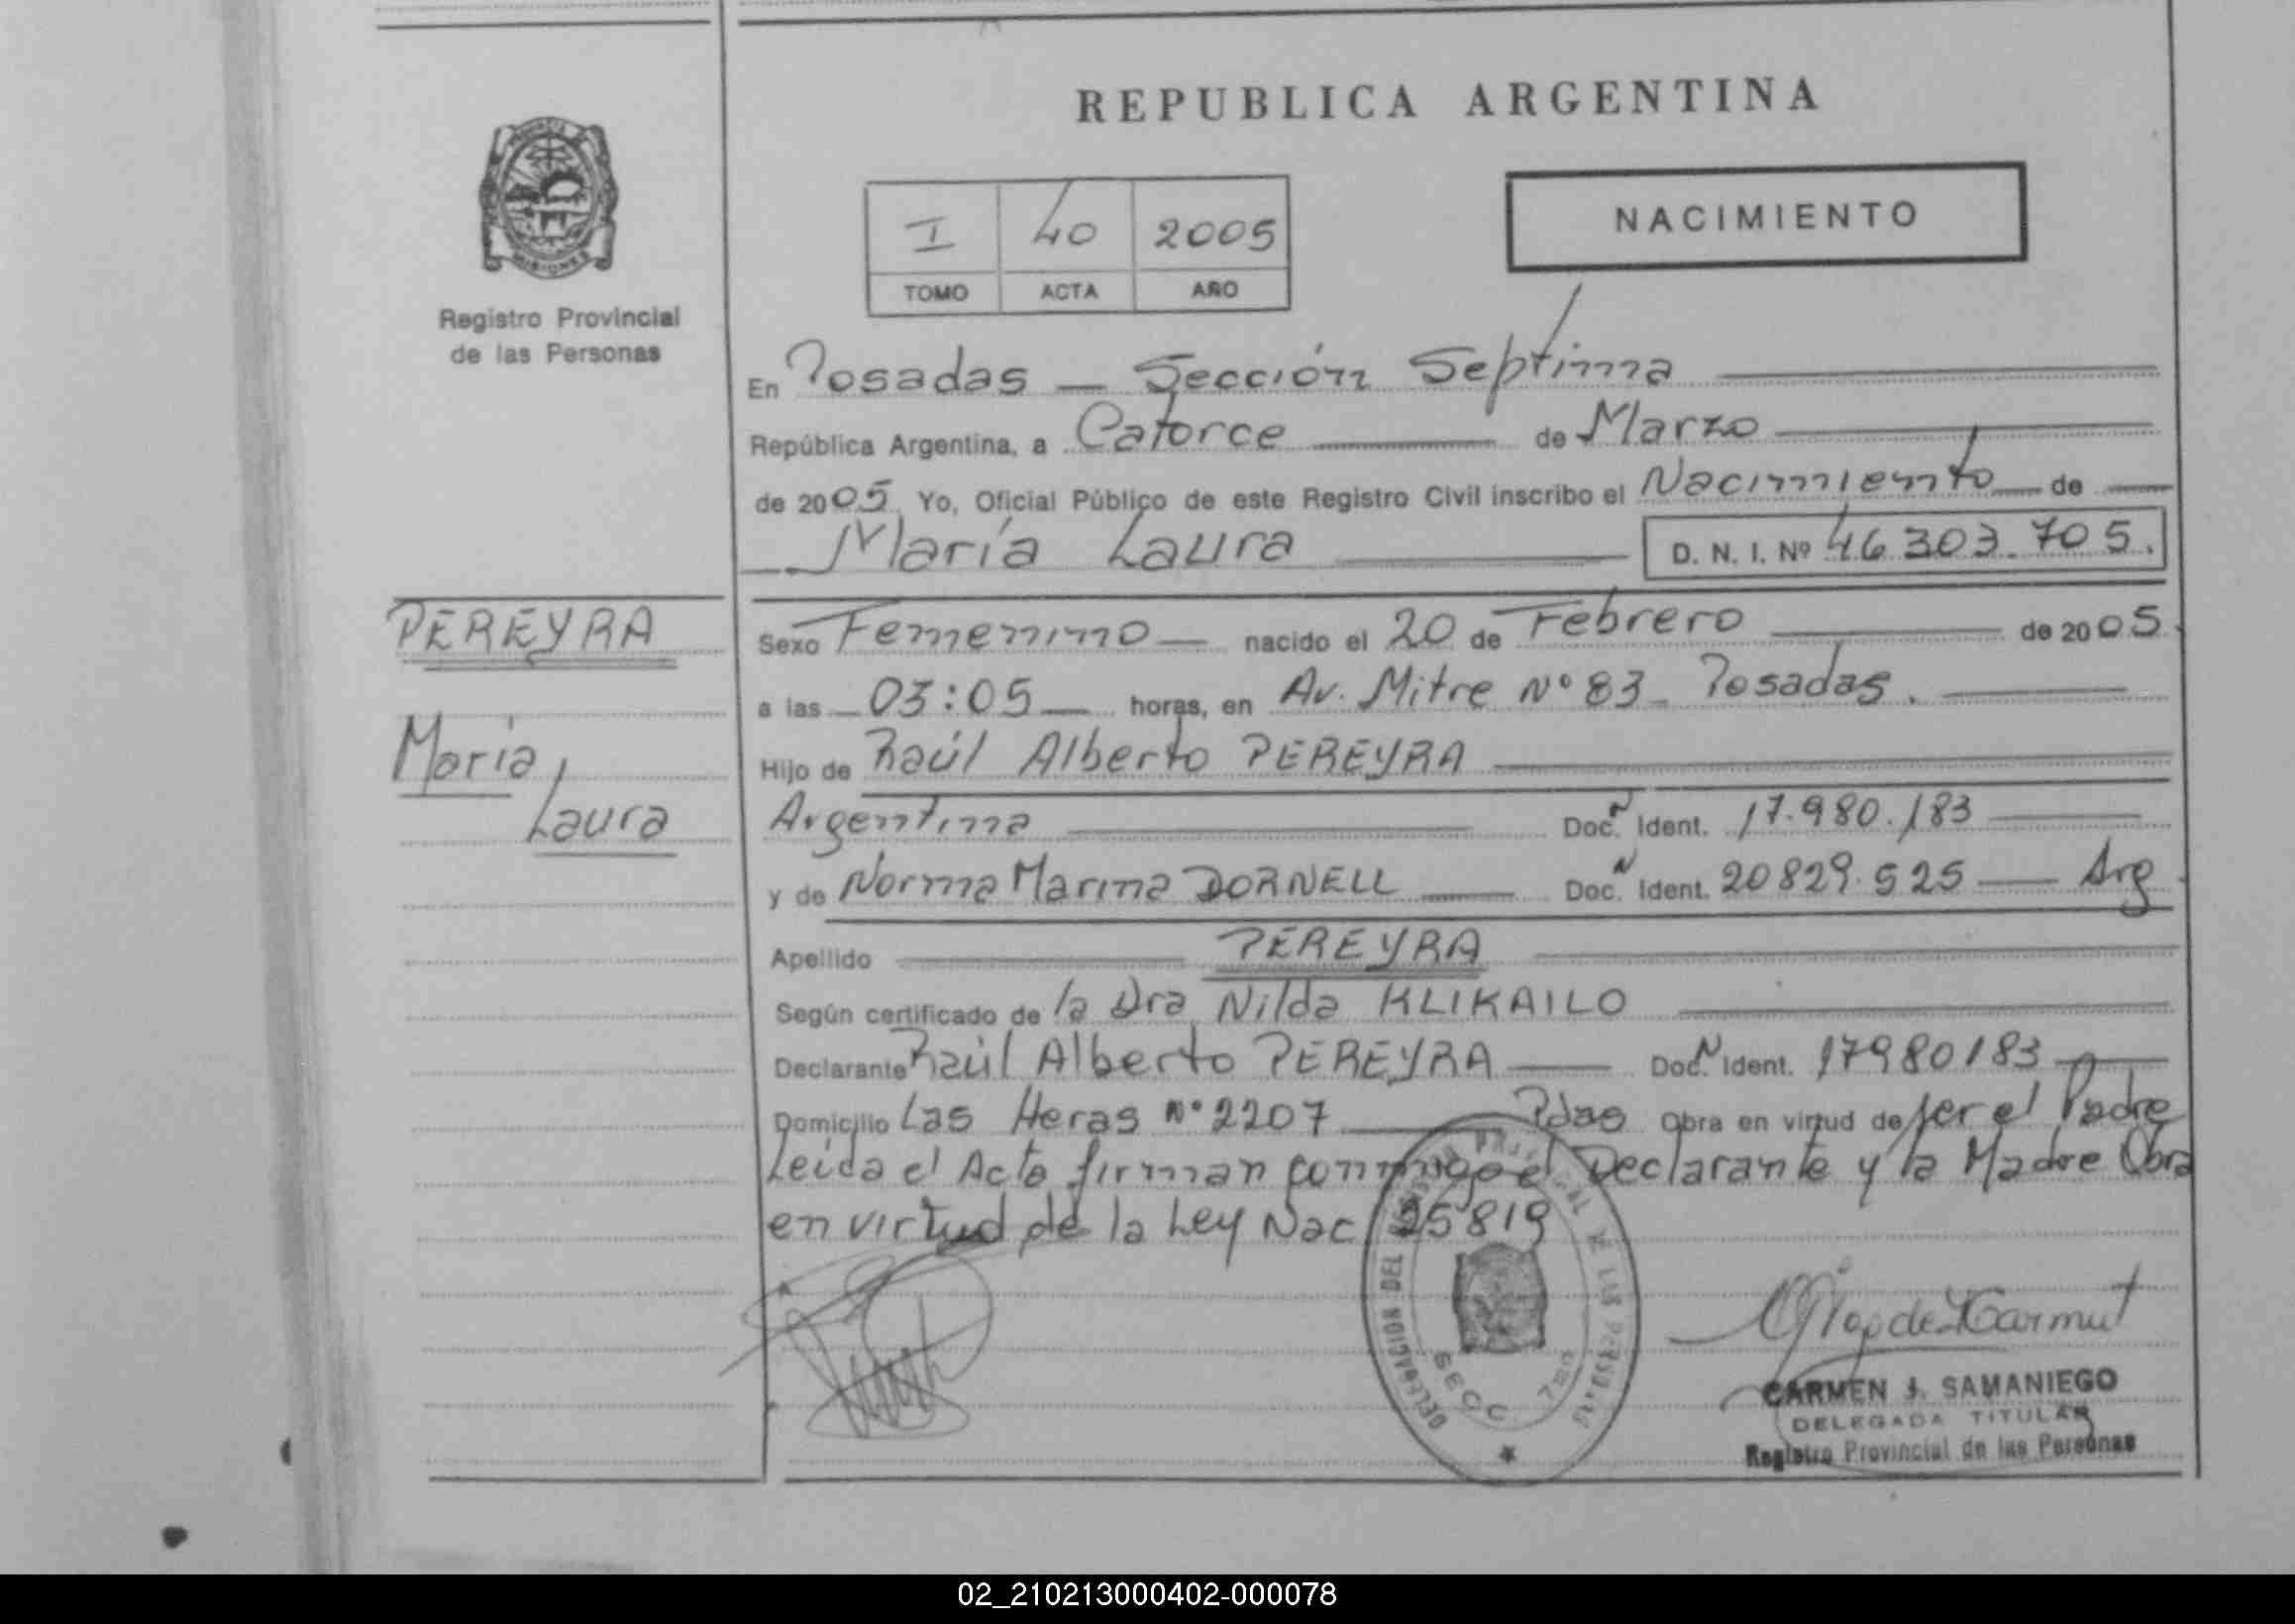 REPUBLICA ARGENTINA
MISIONES
Registro Provincial
de las Personas
I 40 2005
TOMO ACTA AÑO
NACIMIENTO
En Posadas — Sección Septima
República Argentina, a Catorce de Marzo
de 2005 Yo, Oficial Público de este Registro Civil inscribo el Nacimiento de
María Laura D. N. I. Nº 46.303.705.
PEREYRA
María
Laura
Sexo Femenino nacido el 20 de Febrero de 2005
a las 03:05 horas, en Av. Mitre Nº 83 - Posadas.
Hijo de Raúl Alberto PEREYRA
Argentina Doc. N Ident. 17.980.183
y de Norma Marina DORNELL Doc. N Ident. 20829.525 — Arg
Apellido PEREYRA
Según certificado de la Dra Nilda KLIKAILO
Declarante Raúl Alberto PEREYRA Doc. N Ident. 17980183
Domicilio Las Heras Nº 2207 Pdas Obra en virtud de ser el Padre
Leída el Acta firman conmigo el Declarante y la Madre Obra
en virtud de la Ley Nac 25819
DELEGACION DEL REGISTRO PROVINCIAL DE LAS PERSONAS
SECC. 7ma
CARMEN J. SAMANIEGO
DELEGADA TITULAR
Registro Provincial de las Personas
02_210213000402-000078